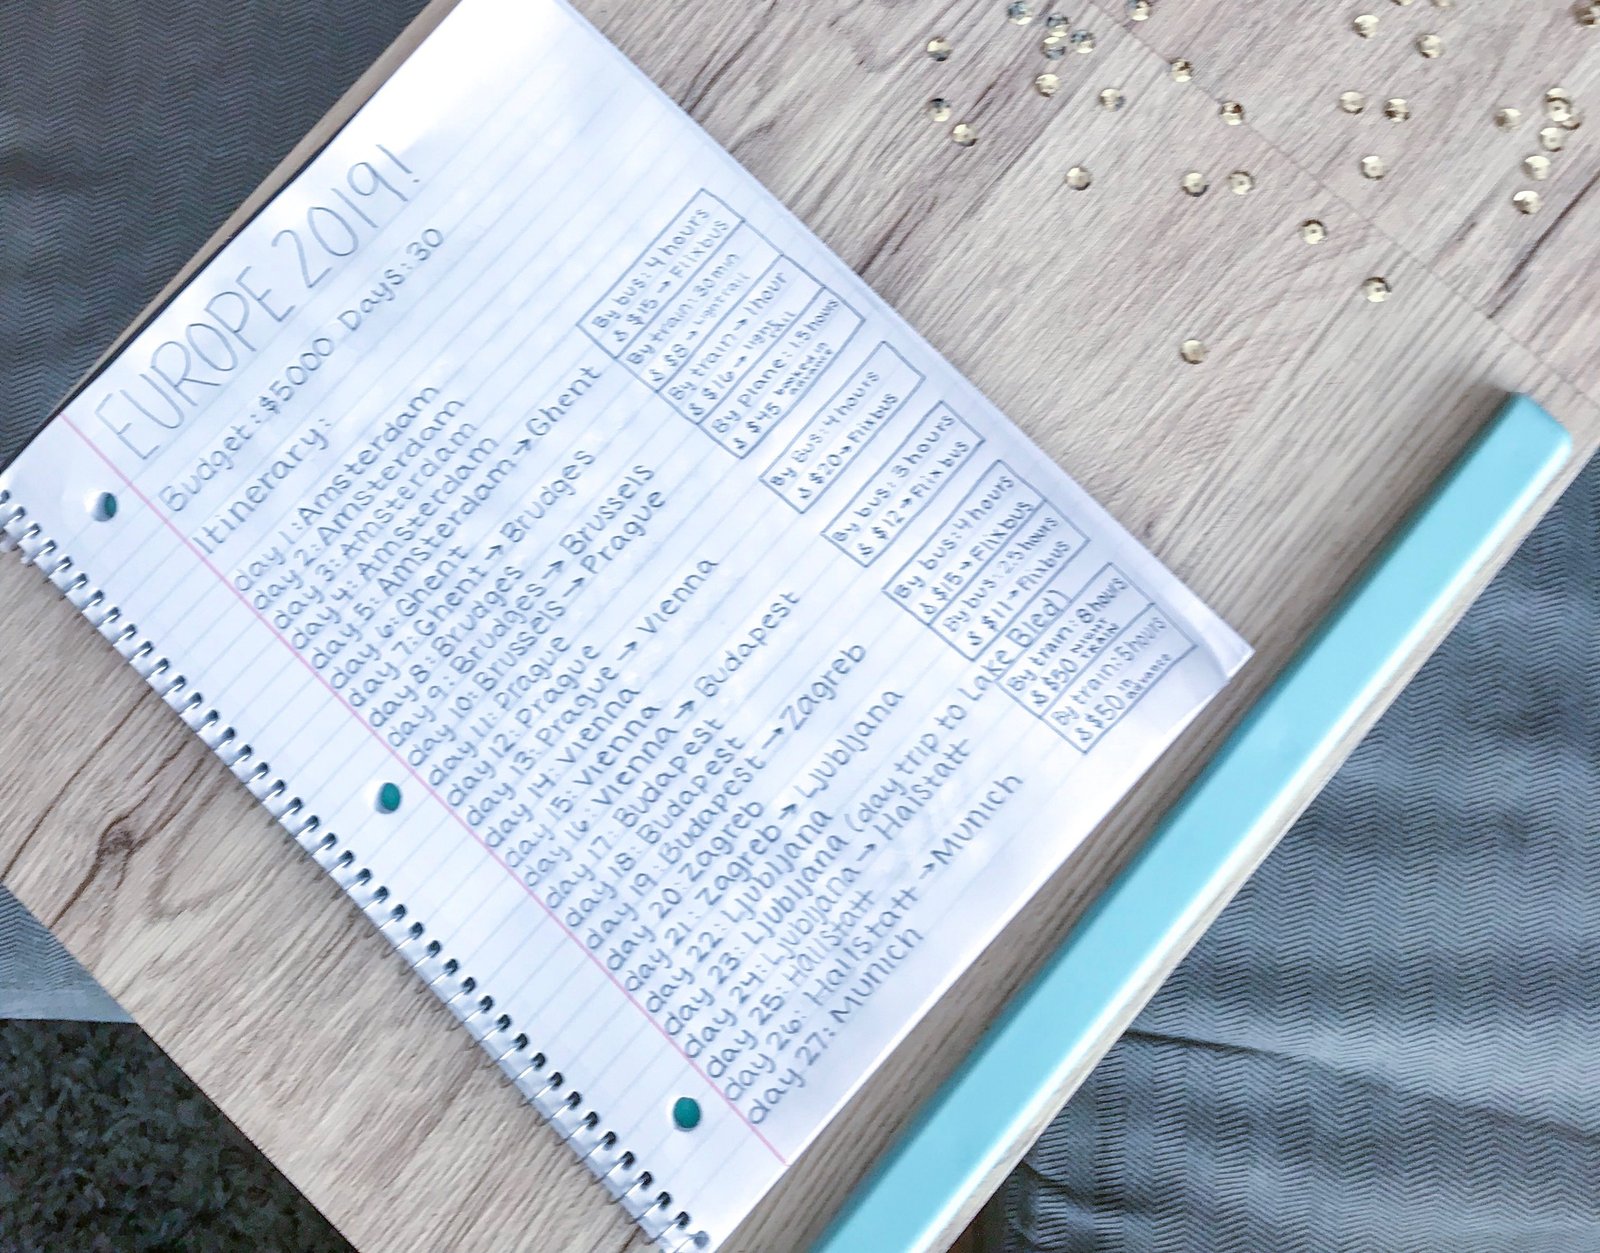 EUROPE 2019!
Budget: $5000 Days: 30
Itinerary:
day 1: Amsterdam
day 2: Amsterdam
day 3: Amsterdam
day 4: Amsterdam
day 5: Amsterdam → Ghent
By bus: 4 hours
& $15 → Flixbus
day 6: Ghent
day 7: Ghent → Brudges
By train: 30 min
& $8 → light rail
day 8: Brudges
day 9: Brudges → Brussels
By train → 1 hour
& $16 → light rail
day 10: Brussels → Prague
By plane: 1.5 hours
& $45 booked in advance
day 11: Prague
day 12: Prague
day 13: Prague → Vienna
By bus: 4 hours
& $20 → Flixbus
day 14: Vienna
day 15: Vienna
day 16: Vienna → Budapest
By bus: 3 hours
& $12 → Flixbus
day 17: Budapest
day 18: Budapest
day 19: Budapest → Zagreb
By bus: 4 hours
& $15 → Flixbus
day 20: Zagreb
day 21: Zagreb → Ljubljana
By bus: 2.5 hours
& $11 → Flixbus
day 22: Ljubljana
day 23: Ljubljana (day trip to Lake Bled)
day 24: Ljubljana → Halstatt
By train: 8 hours
& $50 NIGHT TRAIN
day 25: Hallstatt
day 26: Hallstatt → Munich
By train: 5 hours
& $50 in advance
day 27: Munich